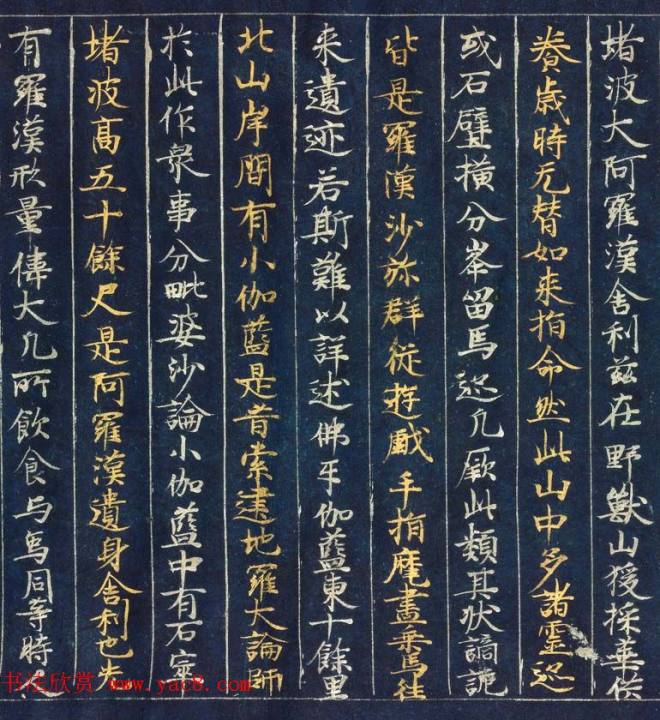 堵波大阿羅漢舍利兹在野獸山猨採華供
養歲時无替如来指命然此山中多諸靈迹
或石壁橫分峯留馬迹凡厥此類其狀譎詭
皆是羅漢沙弥群從遊戲手指麾畫乗馬往
来遺迹若斯難以詳述佛牙伽藍東十餘里
北山岸間有小伽藍是昔索建地羅大論師
於此作衆事分毗婆沙論小伽藍中有石窣
堵波高五十餘尺是阿羅漢遺身舍利也先
有羅漢形量偉大凡所飲食与象同等時
书法欣赏 www.yac8.com